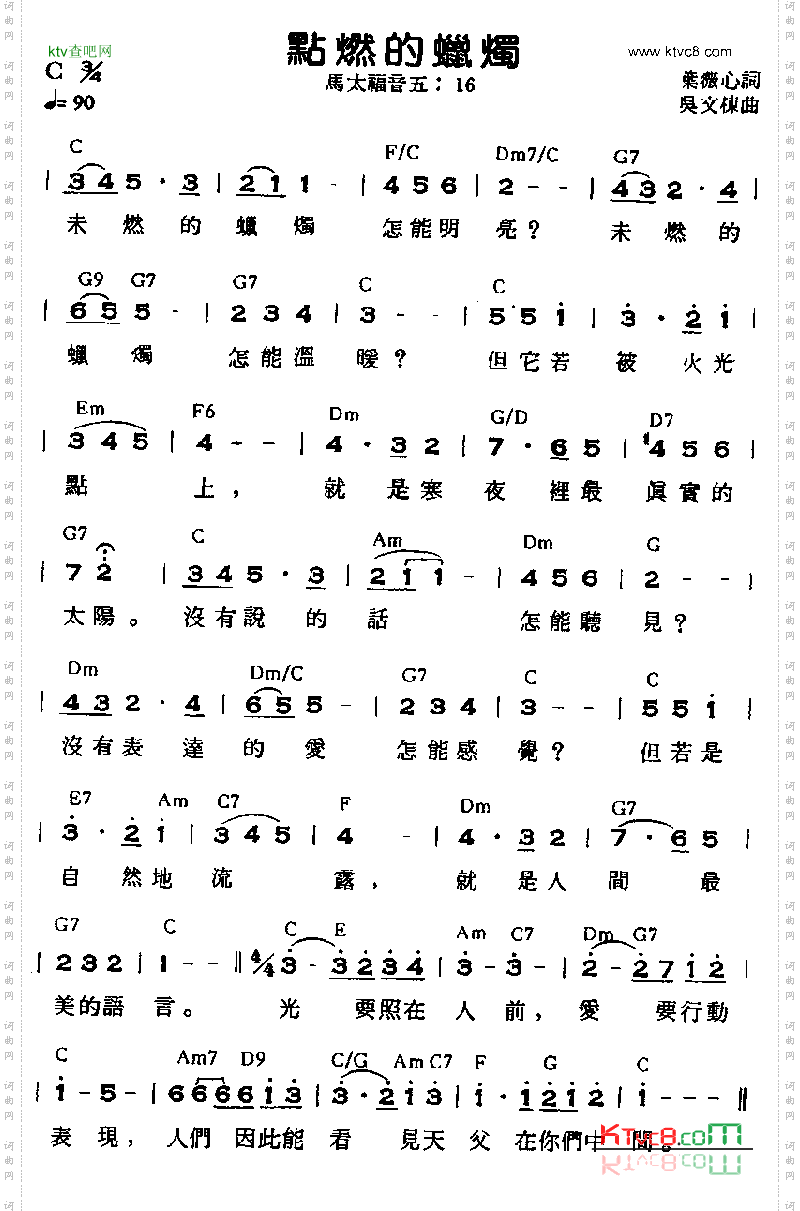 ktv查吧网
點燃的蠟燭
www.ktvc8.com
C 3/4
馬太福音五：16
葉薇心詞
♩= 90
吳文棟曲
C F/C Dm7/C G7
| 3 4 5 · 3 | 2 1 1 - | 4 5 6 | 2 - - | 4 3 2 · 4 |
未燃的蠟燭 怎能明亮？ 未燃的
G9 G7 G7 C C
| 6 5 5 - | 2 3 4 | 3 - - | 5 5 i | 3 · 2 i |
蠟燭 怎能溫暖？ 但它若 被火光
Em F6 Dm G/D D7
| 3 4 5 | 4 - - | 4 · 3 2 | 7 · 6 5 | #4 5 6 |
點 上， 就是寒夜裡最真實的
G7 C Am Dm G
| 7 2 | 3 4 5 · 3 | 2 1 1 - | 4 5 6 | 2 - - |
太陽。沒有說的話 怎能聽見？
Dm Dm/C G7 C C
| 4 3 2 · 4 | 6 5 5 - | 2 3 4 | 3 - - | 5 5 i |
沒有表達的愛 怎能感覺？ 但若是
E7 Am C7 F Dm G7
| 3 · 2 i | 3 4 5 | 4 - - | 4 · 3 2 | 7 · 6 5 |
自然地流露， 就是人間最
G7 C C E Am C7 Dm G7
| 2 3 2 | 1 - - || 4/4 3 - 3 2 3 4 | 3 - 3 - | 2 - 2 7 i 2 |
美的語言。 光 要照在人前，愛 要行動
C Am7 D9 C/G Am C7 F G C
| i - 5 - | 6 6 6 6 i 3 | 3 · 2 i 3 | i · i 2 i 2 | i - - - ||
表現， 人們因此能看見天父在你們中間。
KTvc8.com
词曲网